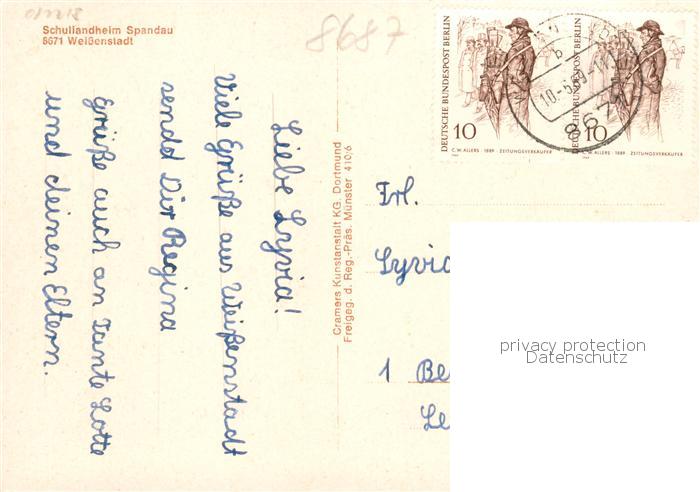 Schullandheim Spandau
8671 Weißenstadt
8687
Liebe Sylvia!
Viele Grüße aus Weißenstadt
sendet Dir Regina
Grüße auch an Tante Lotte
und deinen Eltern.
Cramers Kunstanstalt KG. Dortmund
Freigeg. d. Reg.-Präs. Münster 410/6
DEUTSCHE BUNDESPOST BERLIN
10
C.W. ALLERS · 1889 · ZEITUNGSVERKÄUFER
1969
DEUTSCHE BUNDESPOST BERLIN
10
C.W. ALLERS · 1889 · ZEITUNGSVERKÄUFER
1969
b
867
Frl.
Sylvia
1 Be
Le
privacy protection
Datenschutz